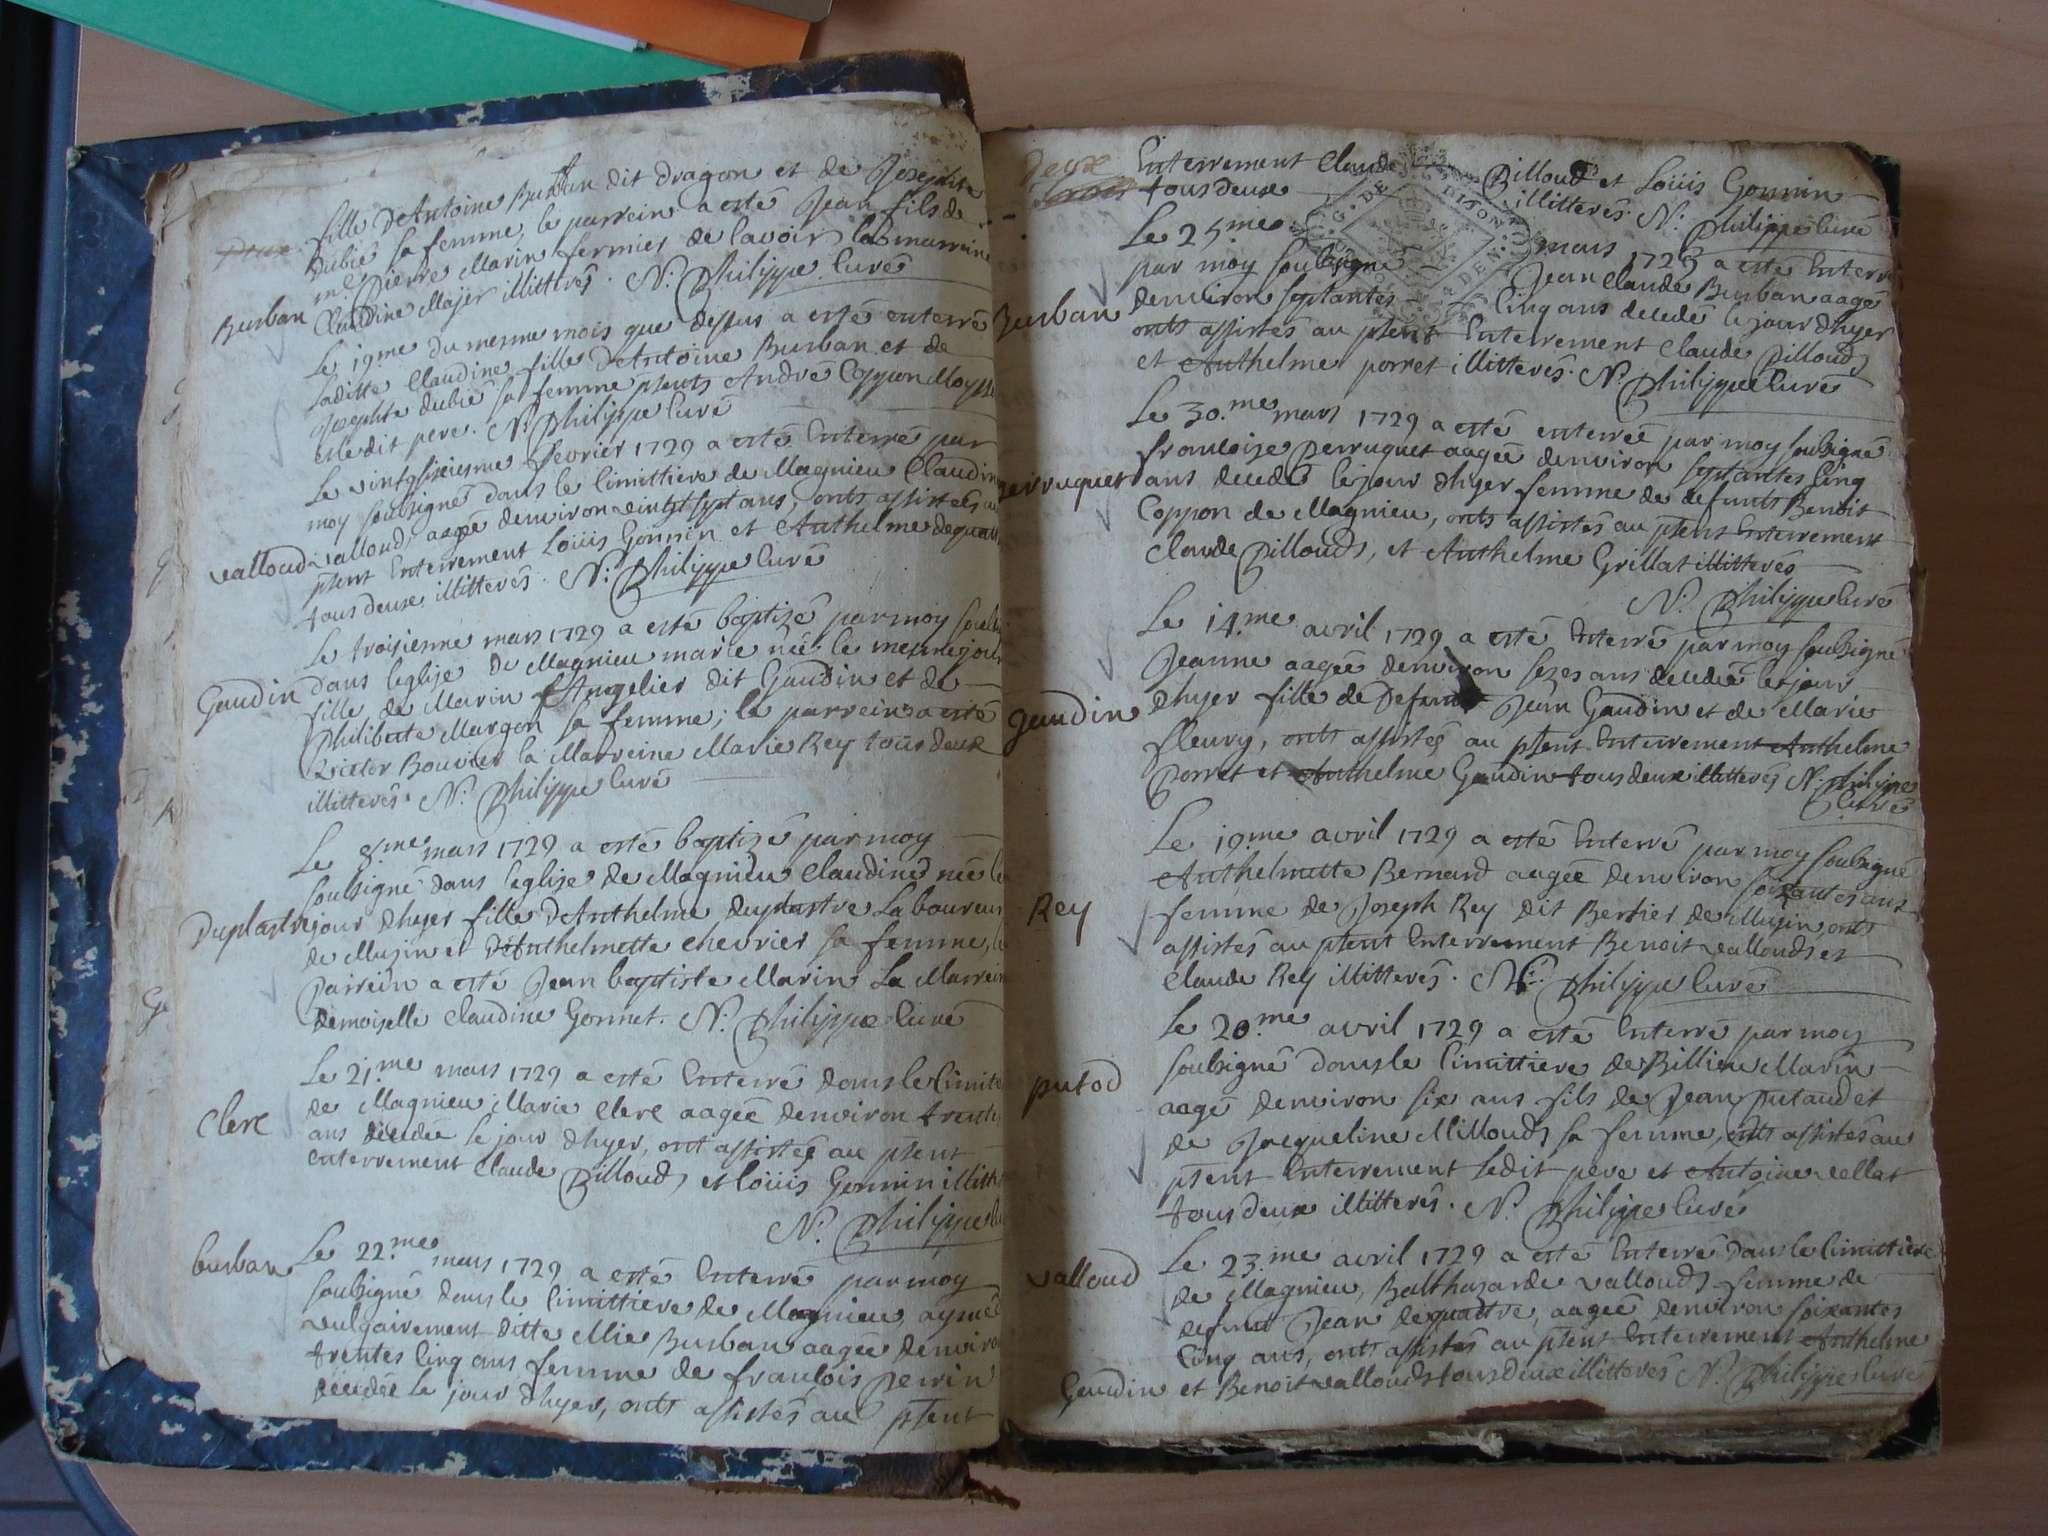 fille D'Antoine Burban dit Dragon et de Josephte
Dubié sa femme, le parrein a esté Jean fils de
m.e Pierre Marin fermier de lavoir la marreine
Claudine Majer illitterés. N. Philippe curé
Burban
Le 19.me du mesme mois que dessus a esté enterré
laditte Claudine fille D'Antoine Burban et de
Josephte dubié sa femme pñts André Coppon
et ledit pere. N. Philippe curé
Le vintsixiesme fevrier 1729 a esté Enterré par
moy soubsigné dans le cimittiere de Magnieu Claudin
valloud
valloud, aagée denviron vintsept ans, onts assistés au
pñent Enterrement Loüis Gonnin et Anthelme dequatt
tous deux illitterés. N. Philippe curé
Le troisiesme mars 1729 a esté baptizé par moy soubsi
Gaudin
dans leglise de Magnieu marie née le mesme jour
fille de Marin Angelier dit Gaudin et de
Philiberte Margon sa femme; le parrein a esté
Victor Bouvier la Marreine Marie Rey tous deux
illitterés. N. Philippe curé
Le 8.me mars 1729 a esté baptizé par moy
soubsigné dans leglise de Magnieu Claudine née le
Duplastre
jour dhyer fille D'Anthelme duplastre Laboureur
de Musin et D'Anthelmette chevrier sa femme, le
Parrein a esté Jean baptiste Marin La Marrein
demoiselle Claudine Gonnet. N. Philippe curé
Le 21.me mars 1729 a esté Enterré dans le cimitt
Clerc
de Magnieu Marie Clerc aagée denviron trente
ans décedée le jour dhyer, ont assistés au pñent
enterrement Claude Pilloud, et Loüis Gonnin illitt
N. Philippe cu
burban
Le 22.me mars 1729 a esté Enterré par moy
soubsigné dans le cimittiere de Magnieu, aymée
vulgairement ditte Mie Burban aagée denviro
trentes cinq ans femme de francois Perrin
décedée le jour dhyer, onts assistés au pñent
deux
Enterrement Claude Pilloud et Loüis Gonnin
tous deux illitterés. N. Philippe curé
G. DE DIJON
Le 25.me mars 1729 a esté Enterré
par moy soubsigné Jean Claude Burban aagé
Burban
denviron septantes cinq ans decedé le jour dhyer
onts assistés au pñent Enterrement Claude Pilloud
et Anthelme porret illitterés. N. Philippe curé
Le 30.me mars 1729 a esté enterrée par moy soubsigné
francoise Perruquet aagée denviron septantes cinq
perruquet
ans decedée le jour dhyer femme de defunt Benoit
Coppon de Magnieu, onts assistés au pñent Enterrement
Claude Pilloud, et Anthelme Grillat illitterés
N. Philippe curé
Le 14.me avril 1729 a esté Enterré par moy soubsigné
Jeanne aagée denviron sezes ans decedée le jour
gaudin
dhyer fille de Defunt Jean Gaudin et de Marie
fleury, onts assistés au pñent Enterrement Anthelme
Porret et Anthelme Gaudin tous deux illitterés N. Philippe
curé
Le 19.me avril 1729 a esté Enterré par moy soubsigné
Anthelmette Bernard aagée denviron soixantes ans
Rey
femme de Joseph Rey dit Bertier de Musin onts
assistés au pñent Enterrement Benoit valloud et
Claude Rey illitterés. N. Philippe curé
Le 20.me avril 1729 a esté Enterré par moy
putod
soubsigné dans le cimittiere de Billieu Marin
aagé denviron six ans fils de Jean Putaud et
de Jacqueline Milloud sa femme, onts assistés au
pñent Enterrement ledit pere et Antoine vellat
tous deux illitterés. N. Philippe curé
Le 23.me avril 1729 a esté Enterré dans le cimittiere
valloud
de Magnieu, Balthazarde valloud femme de
defunt Jean dequattre, aagée denviron soixantes
cinq ans, onts assistés au pñent Enterrement Anthelme
Gaudin et Benoit valloud tous deux illitterés N. Philippe curé